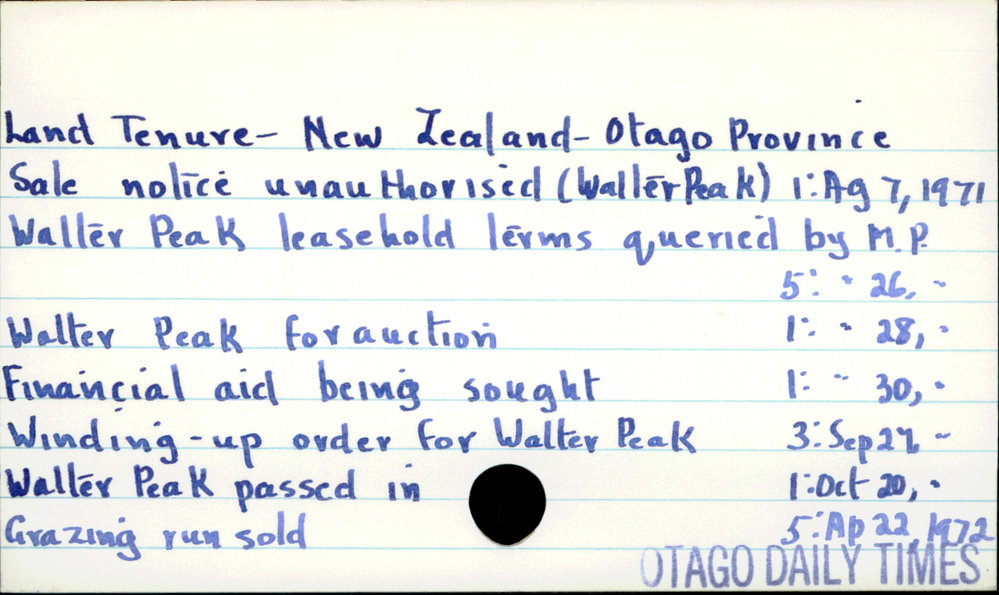 Land Tenure - New Zealand - Otago Province
Sale notice unauthorised (Walter Peak) 1: Ag 7, 1971
Walter Peak leasehold terms queried by M.P.
5: " 26, "
Walter Peak for auction 1: " 28, "
Financial aid being sought 1: " 30, "
Winding-up order for Walter Peak 3: Sep "
Walter Peak passed in 1: Oct 20, "
Grazing run sold 5: Ap 22, 1972
OTAGO DAILY TIMES